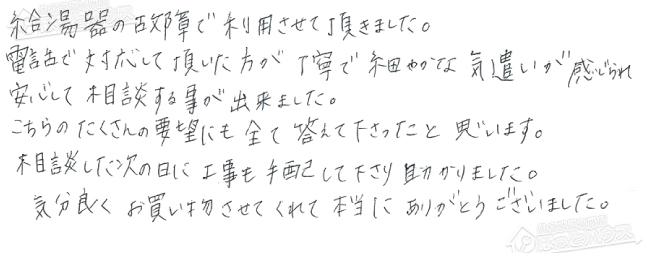 給湯器の故障で利用させて頂きました。
電話で対応して頂いた方が丁寧で細やかな気遣いが感じられ
安心して相談する事が出来ました。
こちらのたくさんの要望にも全て答えて下さったと思います。
相談した次の日に工事も手配して下さり助かりました。
気分良くお買い物させてくれて本当にありがとうございました。